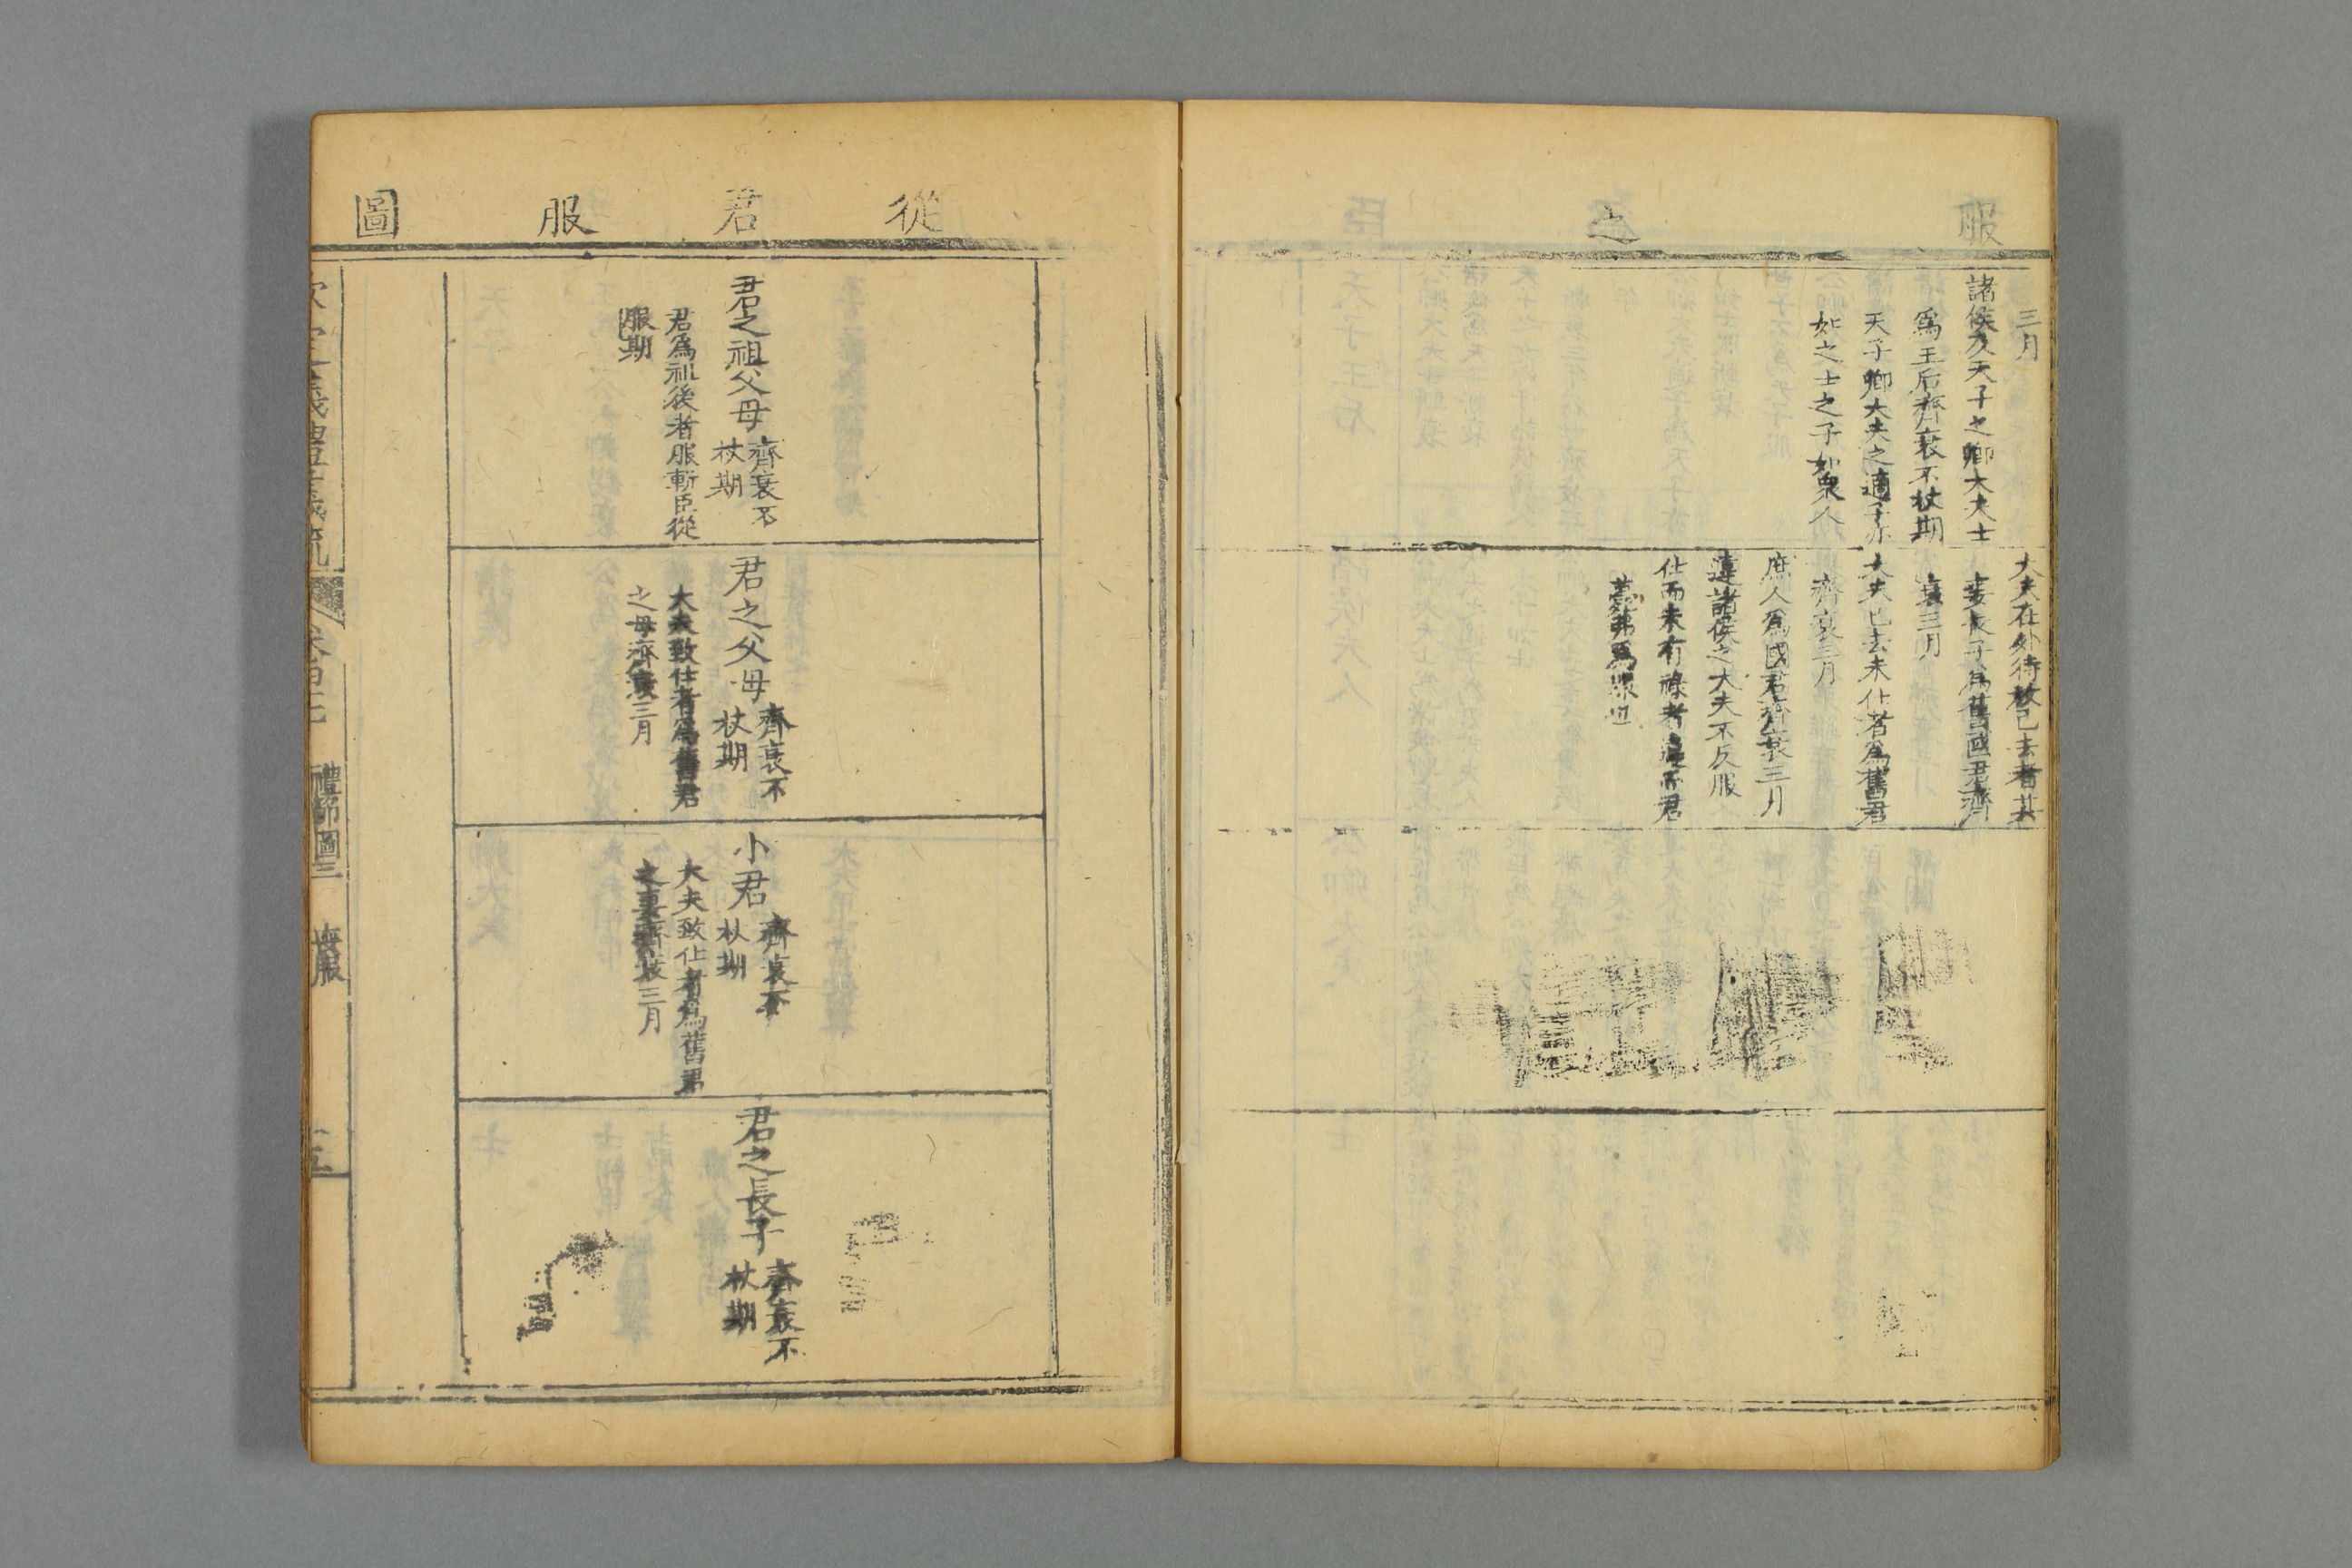 服 之
三月
諸侯及天子之卿大夫士
爲王后齊衰不杖期
天子卿大夫之適子亦
如之士之子如衆人
大夫在外待放已去者其
妻長子爲舊國君齊
衰三月
大夫已去未仕者爲舊君
齊衰三月
庶人爲國君齊衰三月
違諸侯之大夫不反服
仕而未有祿者違而君
薨弗爲服也
從君服圖
君之祖父母 齊衰不
杖期
君爲祖後者服斬臣從
服期
君之父母 齊衰不
杖期
大夫致仕者爲舊君
之母齊衰三月
小君 齊衰不
杖期
大夫致仕者爲舊君
之妻齊衰三月
君之長子 齊衰不
杖期
禮節圖三 喪服